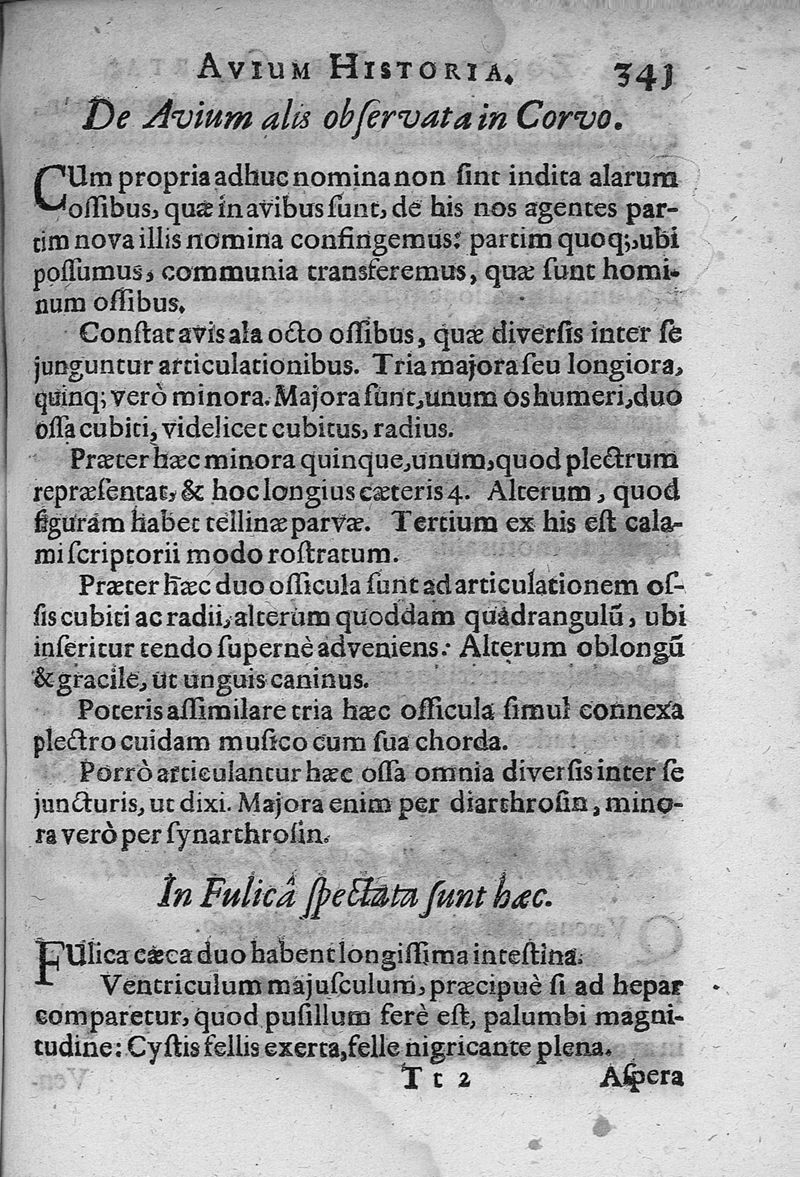 AVIUM HISTORIA. 341
De Avium alis obſervata in Corvo.
CUm propria adhuc nomina non ſint indita alarum
oſſibus, quæ in avibus ſunt, de his nos agentes par-
tim nova illis nomina confingemus: partim quoq;, ubi
poſſumus, communia transferemus, quæ ſunt homi-
num oſſibus.
Conſtat avis ala octo oſſibus, quæ diverſis inter ſe
junguntur articulationibus. Tria majora ſeu longiora,
quinq; verò minora. Majora ſunt, unum os humeri, duo
oſſa cubiti, videlicet cubitus, radius.
Præter hæc minora quinque, unum, quod plectrum
repræſentat, & hoc longius cæteris 4. Alterum, quod
figuram habet tellinæ parvæ. Tertium ex his eſt cala-
mi ſcriptorii modo roſtratum.
Præter hæc duo oſſicula ſunt ad articulationem oſ-
ſis cubiti ac radii, alterum quoddam quadrangulū, ubi
inſeritur tendo ſupernè adveniens: Alterum oblongū
& gracile, ut unguis caninus.
Poteris aſſimilare tria hæc oſſicula ſimul connexa
plectro cuidam muſico cum ſua chorda.
Porrò articulantur hæc oſſa omnia diverſis inter ſe
juncturis, ut dixi. Majora enim per diarthroſin, mino-
ra verò per ſynarthroſin.
In Fulicâ ſpectata ſunt hæc.
FUlica cæca duo habent longiſſima inteſtina.
Ventriculum majuſculum, præcipuè ſi ad hepar
comparetur, quod puſillum ferè eſt, palumbi magni-
tudine: Cyſtis fellis exerta, felle nigricante plena.
Tt 2 Aſpera